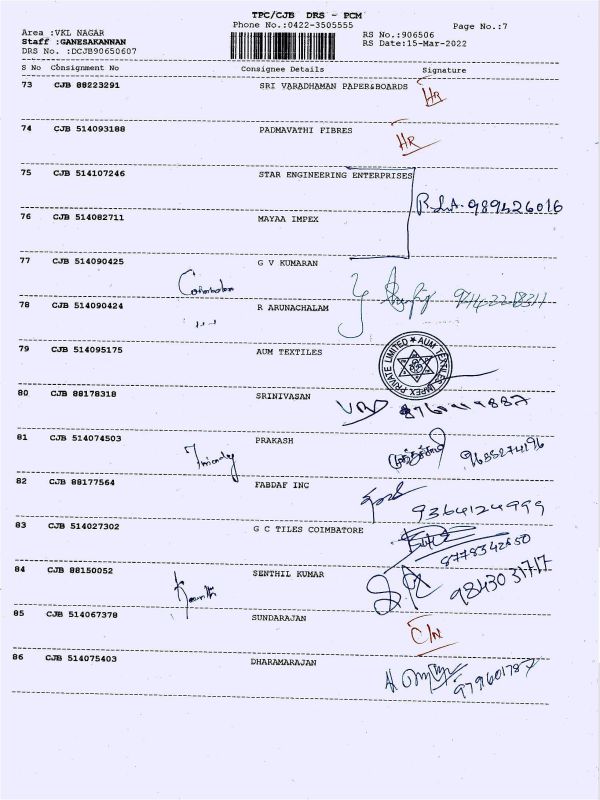 TPC/CJB DRS - PCM
Phone No.:0422-3505555
Page No.:7
Area :VKL NAGAR
RS No.:906506
Staff :GANESAKANNAN
RS Date:15-Mar-2022
DRS No. :DCJB90650607
S No Consignment No Consignee Details Signature
73 CJB 88223291 SRI VARADHAMAN PAPER&BOARDS HR
74 CJB 514093188 PADMAVATHI FIBRES HR
75 CJB 514107246 STAR ENGINEERING ENTERPRISES
76 CJB 514082711 MAYAA IMPEX
77 CJB 514090425 G V KUMARAN
78 CJB 514090424 R ARUNACHALAM
79 CJB 514095175 AUM TEXTILES
AUM TEXTILES IMPEX PRIVATE LIMITED
80 CJB 88178318 SRINIVASAN
81 CJB 514074503 PRAKASH
9685274196
82 CJB 88177564 FABDAF INC
9364124999
83 CJB 514027302 G C TILES COIMBATORE
84 CJB 88150052 SENTHIL KUMAR
98430 31717
85 CJB 514067378 SUNDARAJAN C/N
86 CJB 514075403 DHARAMARAJAN